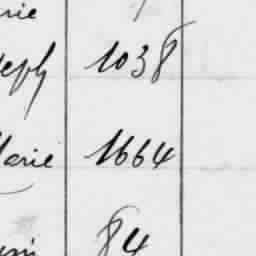 rie
seph 1038
Marie 1664
84